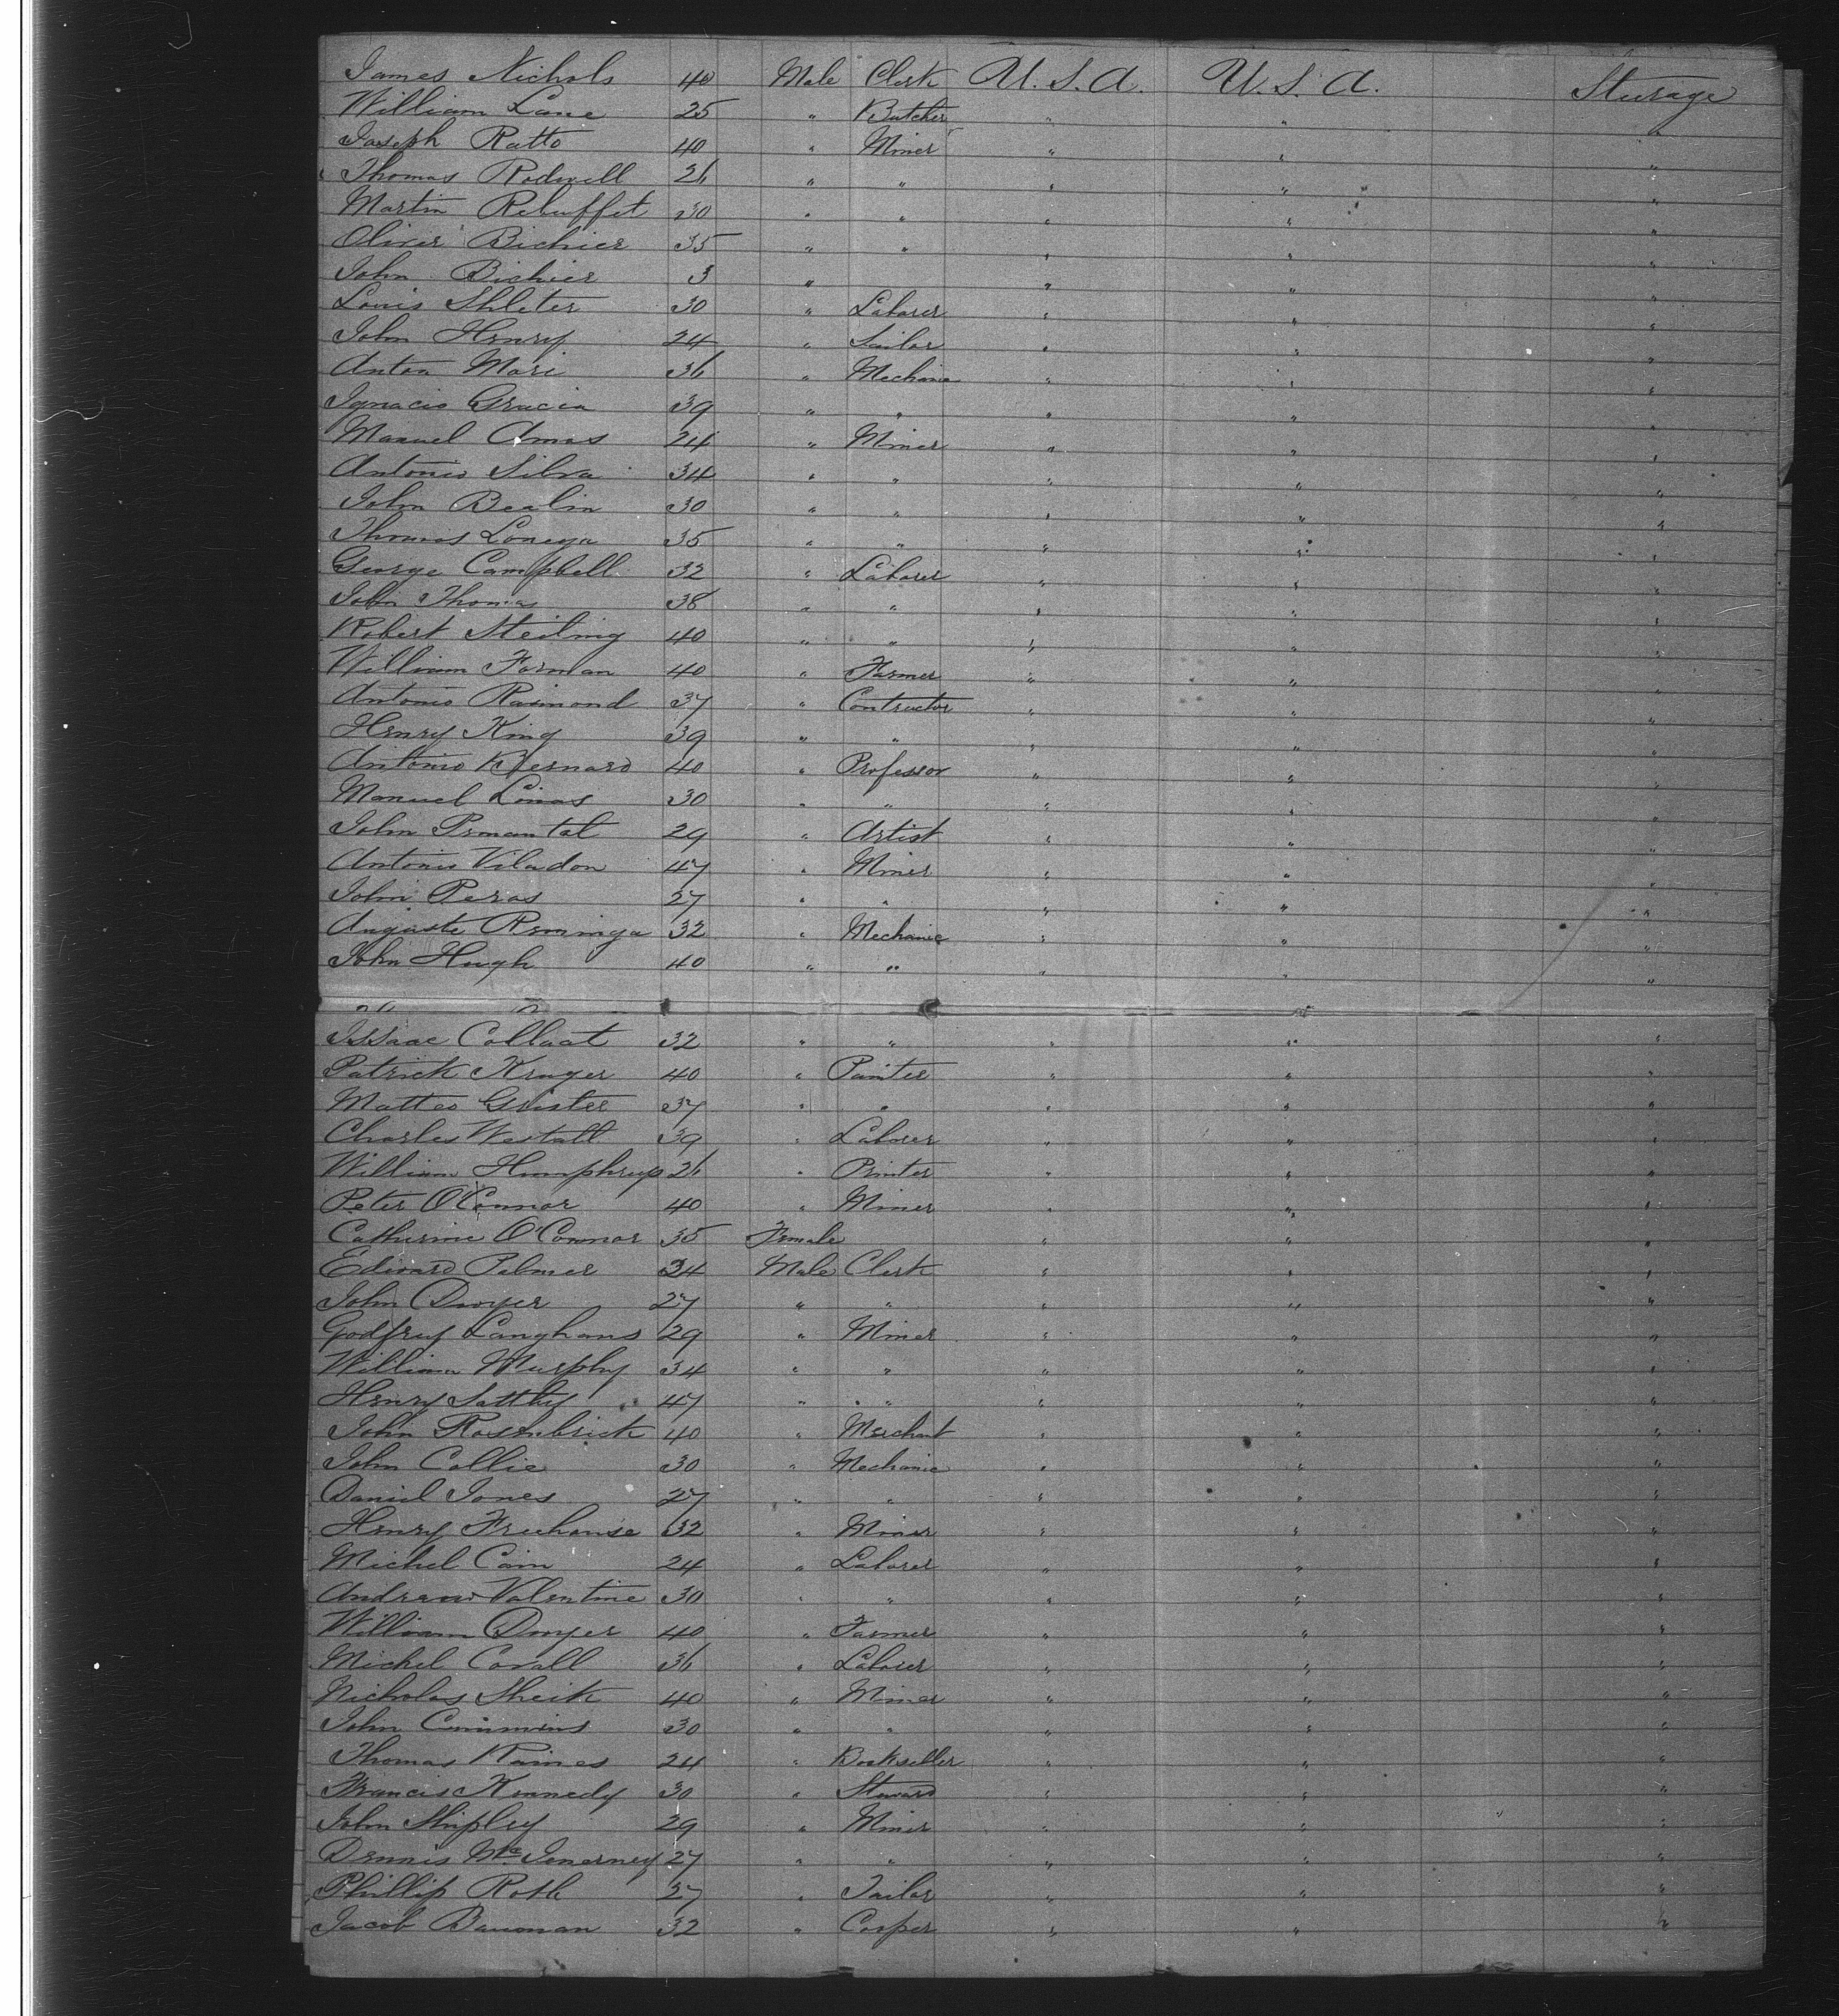 James Nichols 40 Male Clerk U. S. A. U. S. A. Steerage
William Lane 25 " Butcher " " "
Joseph Ratto 40 " Miner " " "
Thomas Rodwell 26 " " " " "
Martin Rebuffet 30 " " " " "
Oliver Bichier 35 " " " " "
John Bichier 3 " " " "
Louis Shleter 30 " Laborer " " "
John Henry 24 " Sailor " " "
Anton Mari 36 " Mechanic " " "
Ignacio Gracia 39 " " " " "
Manuel Amas 24 " Miner " " "
Antonio Silva 34 " " " " "
John Bealin 30 " " " " "
Thomas Lonega 35 " " " " "
George Campbell 32 " Laborer " " "
John Thomas 38 " " " " "
Robert Steiling 40 " " " " "
William Forman 40 " Farmer " " "
Antonio Raimond 37 " Contractor " " "
Henry King 39 " " " " "
Antonio Bernard 40 " Professor " " "
Manuel Linas 30 " " " " "
John Prmantal 29 " Artist " " "
Antonio Viladon 47 " Miner " " "
John Peras 27 " " " " "
Auguste Reminga 32 " Mechanic " " "
John Hugh 40 " " " " "
Issaac Collaat 32 " " " " "
Patrick Kruger 40 " Painter " " "
Matteo Grister 37 " " " " "
Charles Westall 39 " Laborer " " "
William Humphreys 26 " Printer " " "
Peter O'Connor 40 " Miner " " "
Catherine O'Connor 35 Female " " "
Edward Palmer 34 Male Clerk " " "
John Dwyer 27 " " " " "
Godfrey Langhans 29 " Miner " " "
William Murphy 34 " " " " "
Henry Satthy 47 " " " " "
John Rosenbrick 40 " Merchant " " "
John Collie 30 " Mechanic " " "
Daniel Jones 27 " " " " "
Henry Freehause 32 " Miner " " "
Michel Cain 24 " Laborer " " "
Andrew Valentine 30 " " " " "
William Dwyer 40 " Farmer " " "
Michel Corall 36 " Laborer " " "
Nicholas Sheik 40 " Miner " " "
John Cummins 30 " " " " "
Thomas Raines 24 " Bookseller " " "
Francis Kennedy 30 " Steward " " "
John Shipley 29 " Miner " " "
Dennis McInerney 27 " " " " "
Phillip Roth 27 " Tailor " " "
Jacob Bauman 32 " Cooper " " "